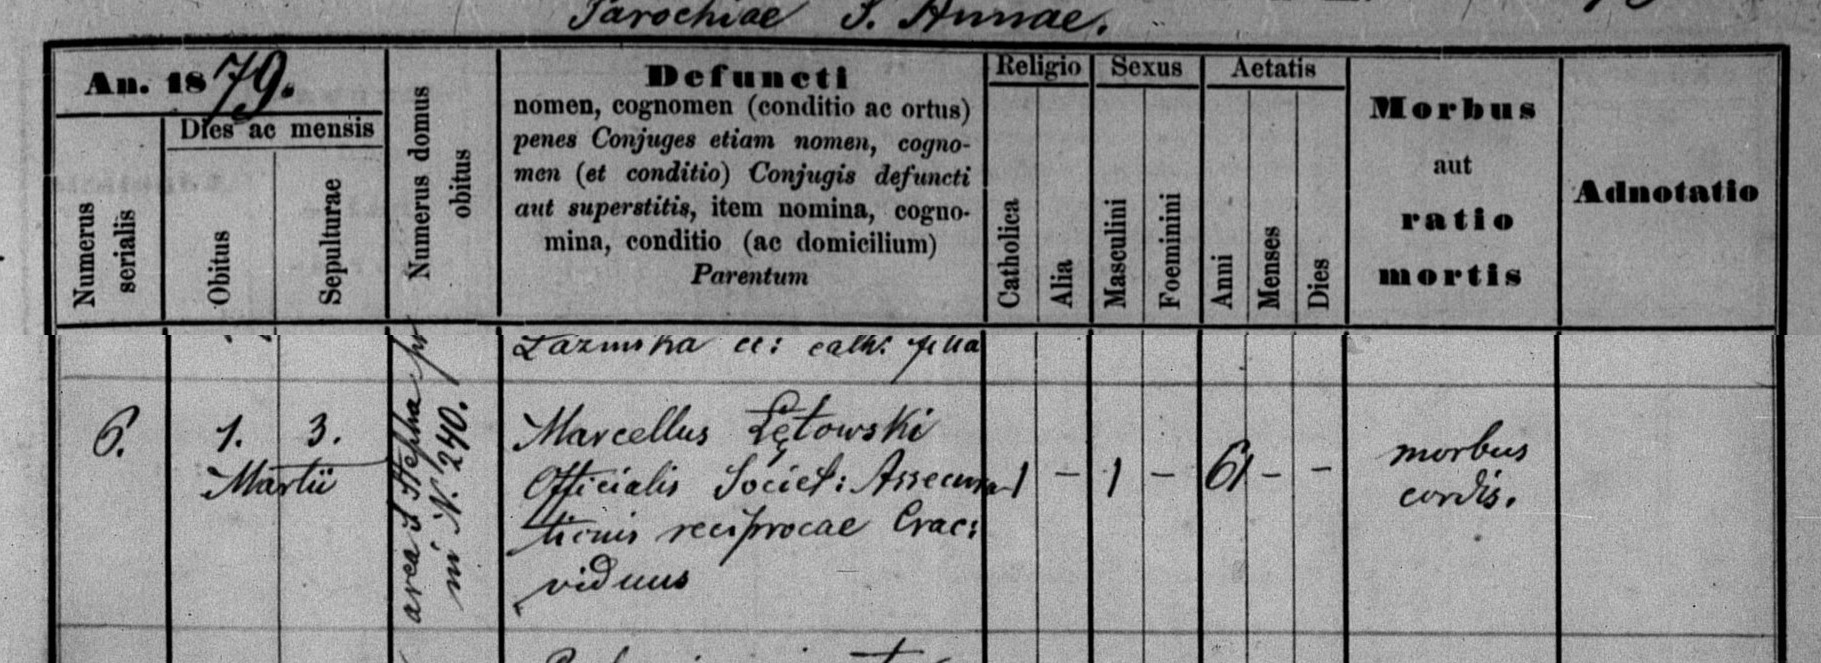 Parochiae S. Annae.
An. 1879.
Dies ac mensis
Numerus serialis
Obitus
Sepulturae
Numerus domus obitus
Defuncti
nomen, cognomen (conditio ac ortus)
penes Conjuges etiam nomen, cogno-
men (et conditio) Conjugis defuncti
aut superstitis, item nomina, cogno-
mina, conditio (ac domicilium)
Parentum
Religio
Catholica
Alia
Sexus
Masculini
Foeminini
Aetatis
Anni
Menses
Dies
Morbus
aut
ratio
mortis
Adnotatio
cath: filia
6.
1. 3.
Martii
area S Stepha
ni N. 240.
Marcellus Łętowski
Officialis Societ: Assecura
tionis reciprocae Crac:
viduus
1 – 1 – 61 – –
morbus
cordis.